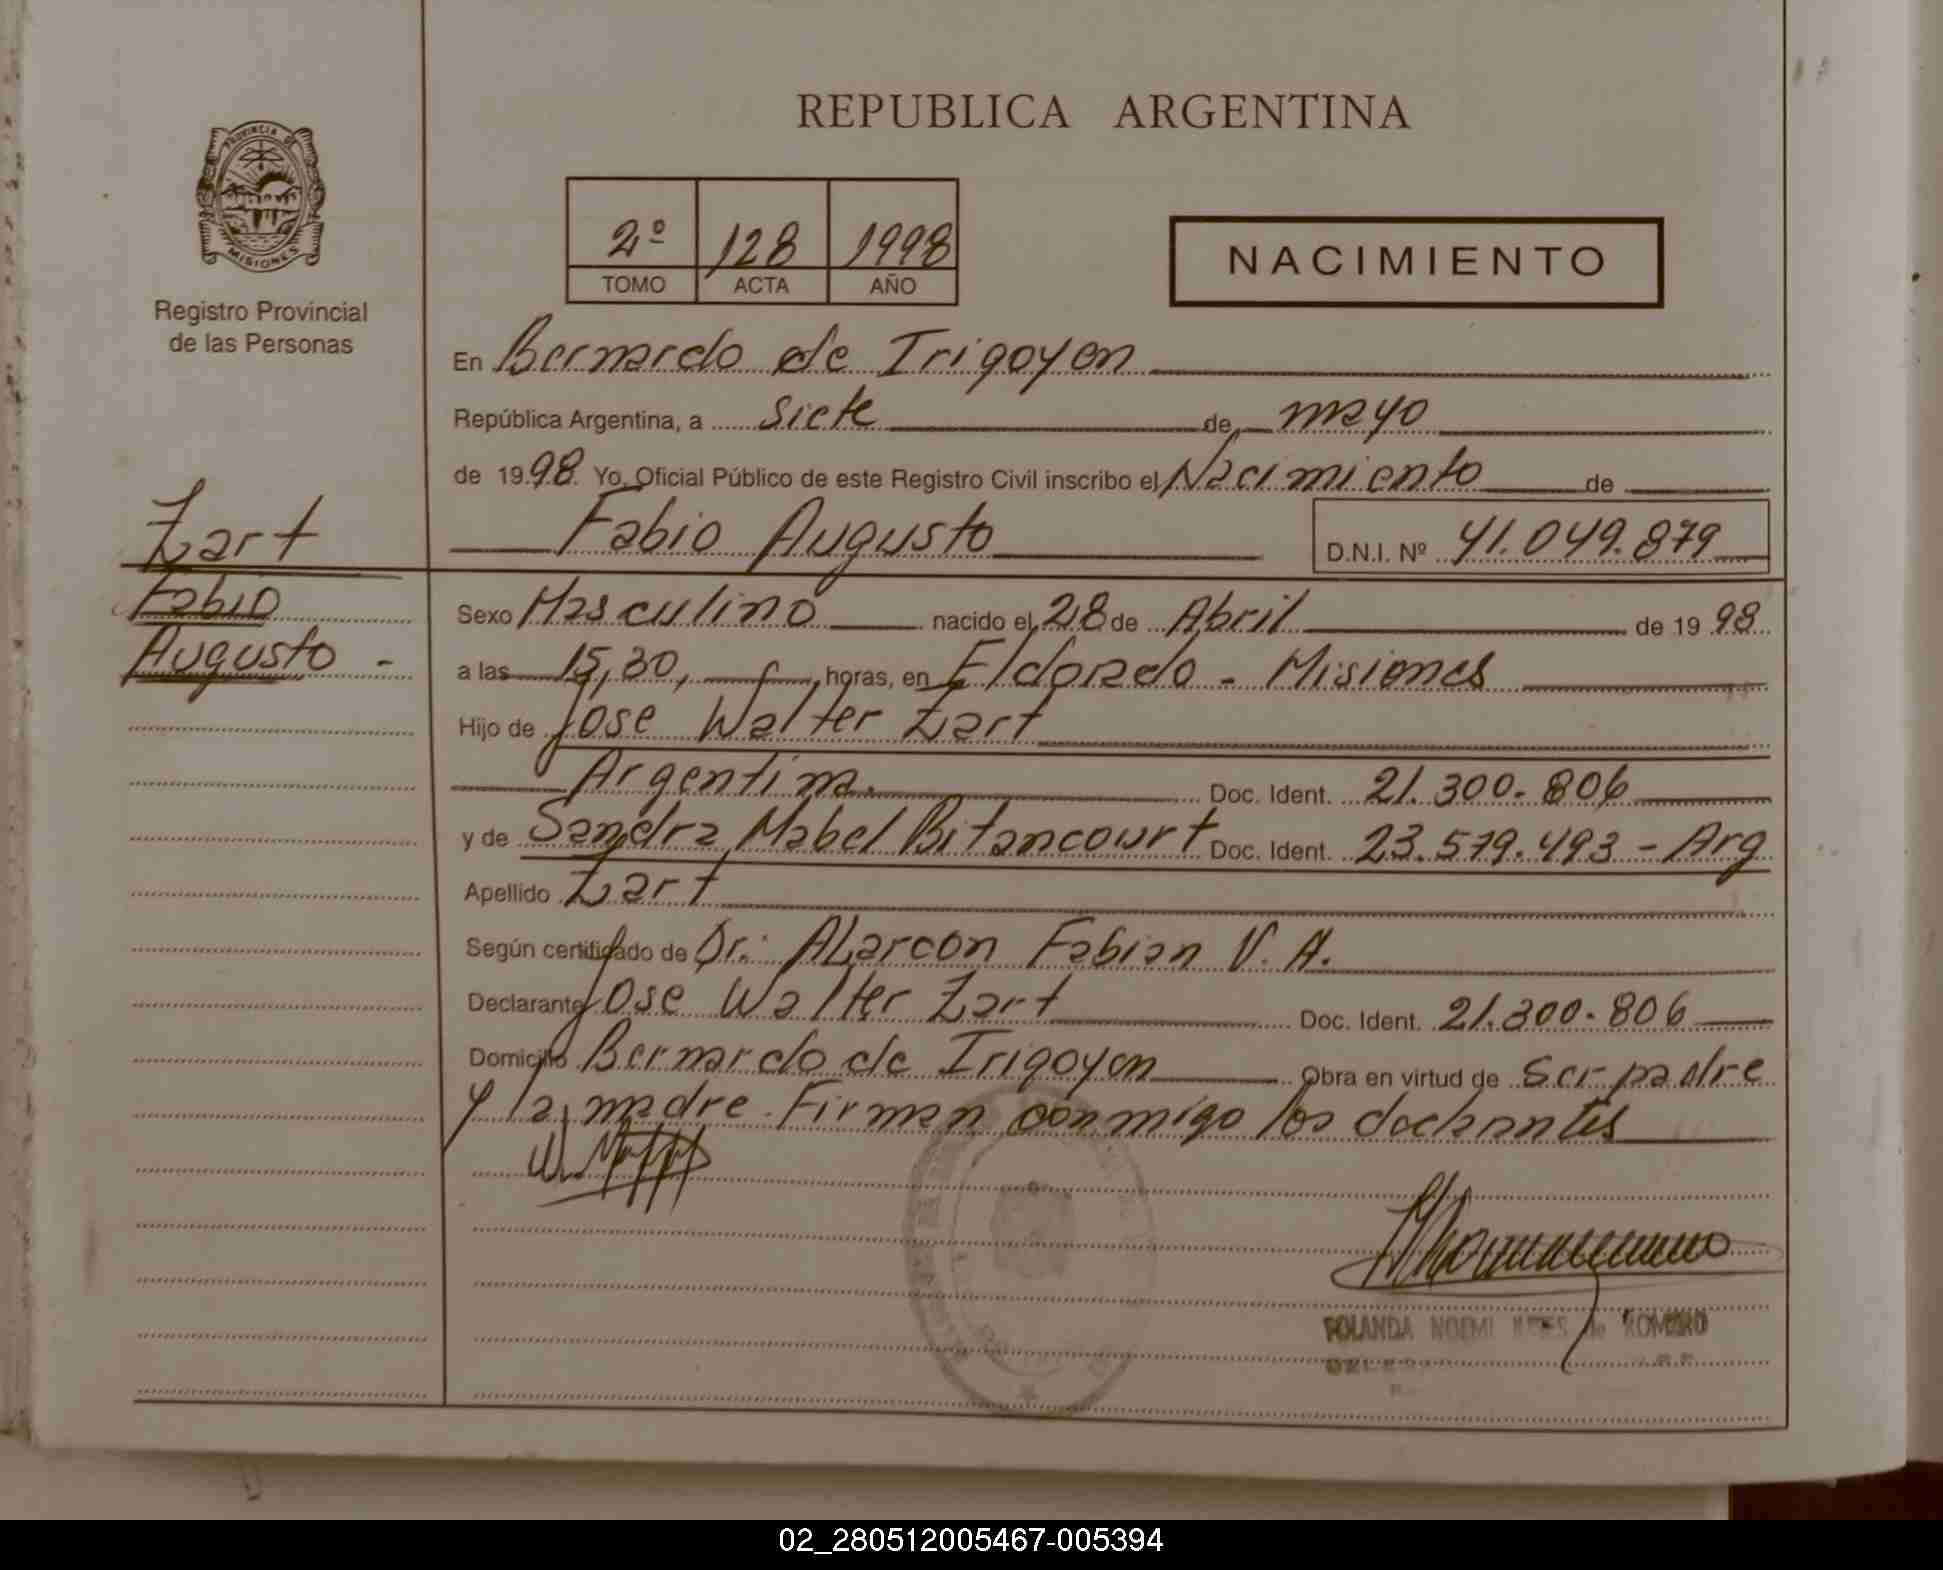 REPUBLICA ARGENTINA
PROVINCIA DE
MISIONES
Registro Provincial
de las Personas
2º 128 1998
TOMO ACTA AÑO
NACIMIENTO
En Bernardo de Irigoyen
República Argentina, a siete de mayo
de 1998. Yo, Oficial Público de este Registro Civil inscribo el Nacimiento de
Fabio Augusto D.N.I. Nº 41.049.879
Zart
Fabio
Augusto -
Sexo Masculino nacido el 28 de Abril de 1998
a las 15,30, horas, en Eldorado - Misiones
Hijo de Jose Walter Zart
Argentina. Doc. Ident. 21.300.806
y de Sandra Mabel Bitancourt Doc. Ident. 23.579.493 - Arg
Apellido Zart
Según certificado de Dr. ALarcon Fabian V. A.
Declarante Jose Walter Zart Doc. Ident. 21.300.806
Domicilio Bernardo de Irigoyen Obra en virtud de ser padre
y la madre. Firman conmigo los
YOLANDA NOEMI de ROMERO
02_280512005467-005394